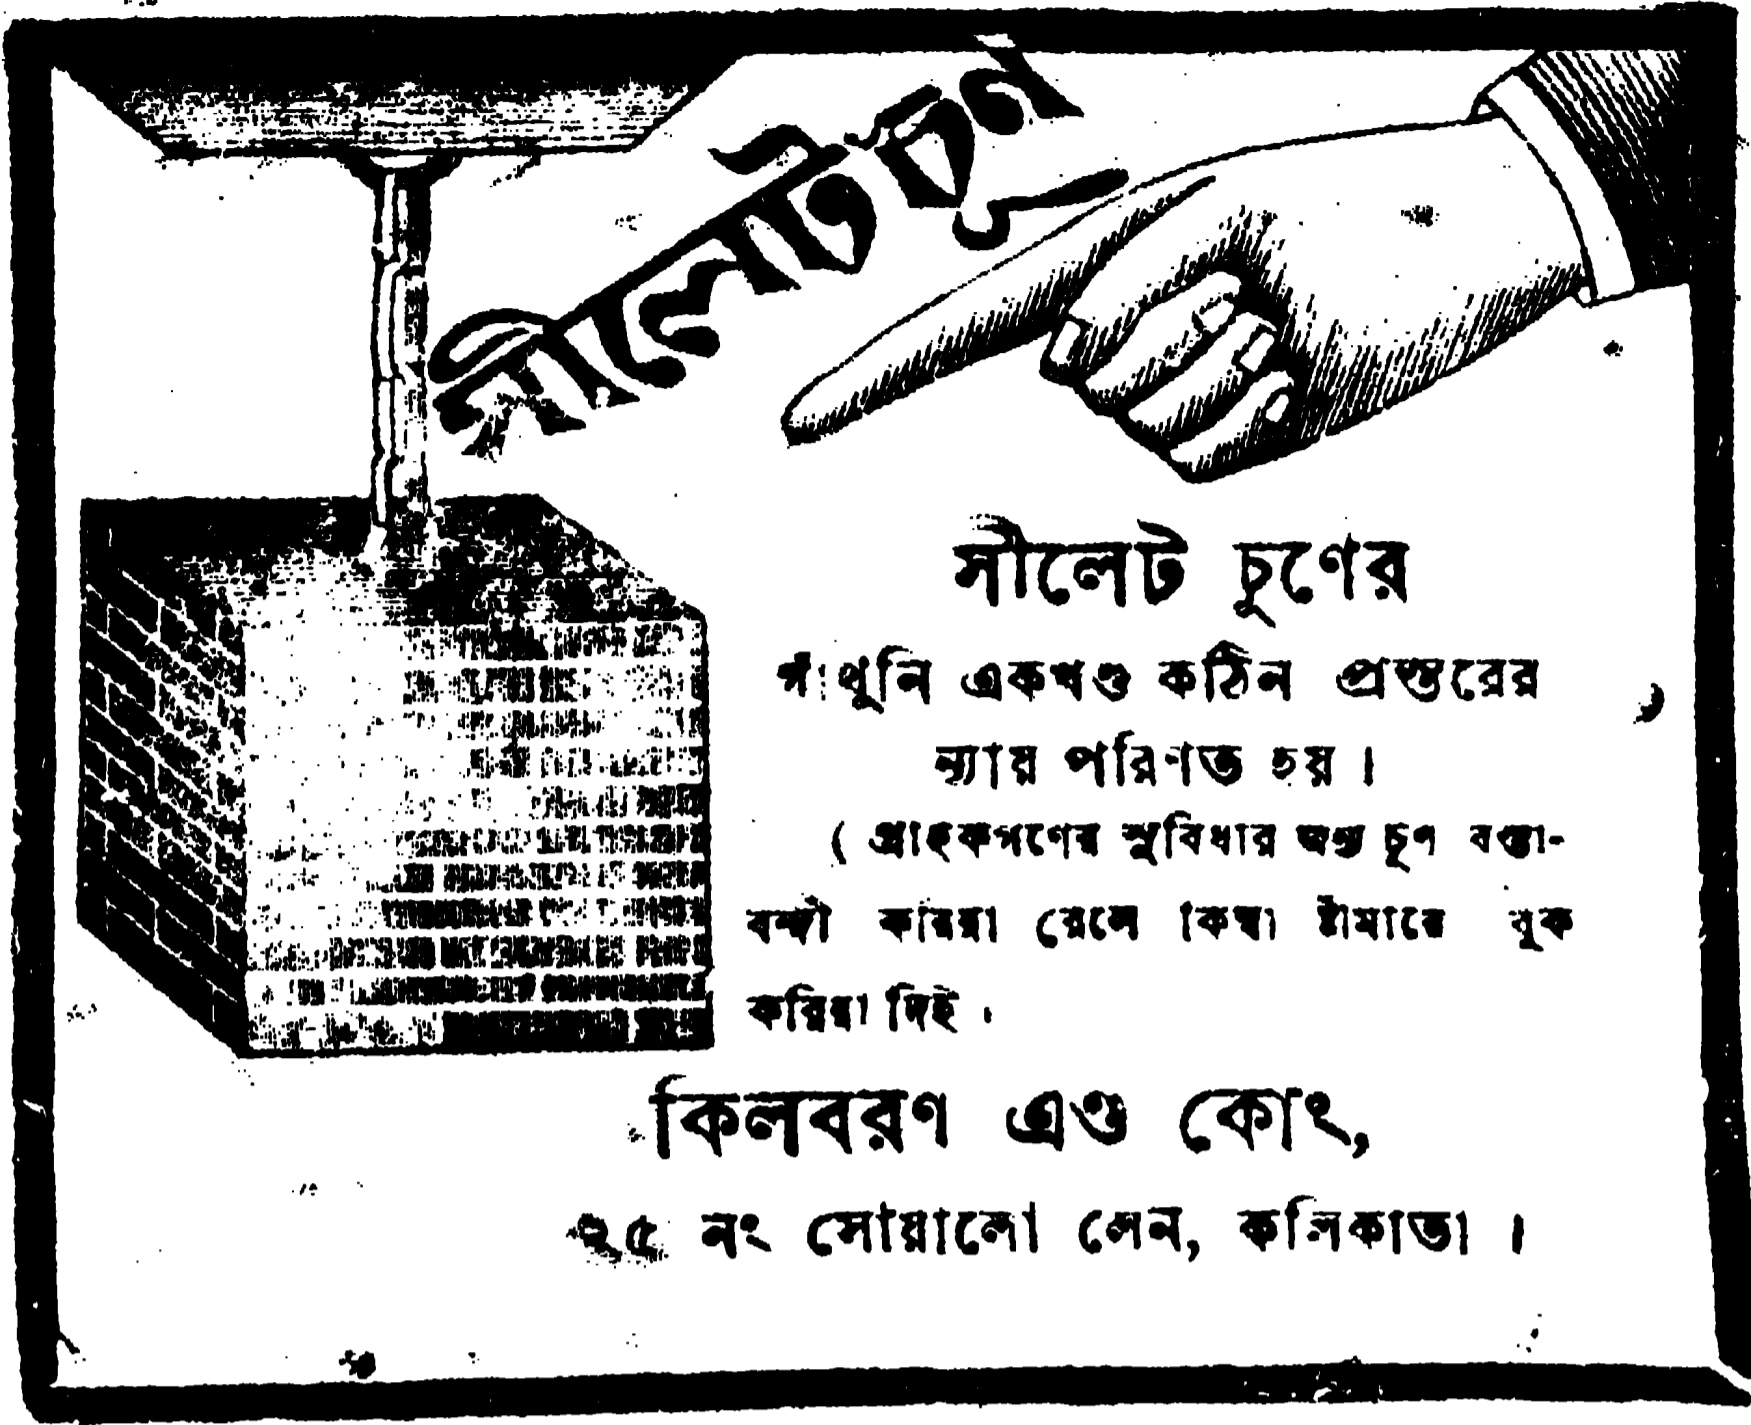 সীলেট চুণ
সীলেট চুণের
গাঁথুনি একখণ্ড কঠিন প্রস্তরের
ন্যায় পরিণত হয়।
( গ্রাহকগণের সুবিধার জন্য চুণ বস্তা-
বন্দী করিয়া রেলে কিম্বা ষ্টীমারে বুক
করিয়া দিই।
কিলবরণ এণ্ড কোং,
২৫ নং সোয়ালো লেন, কলিকাতা।